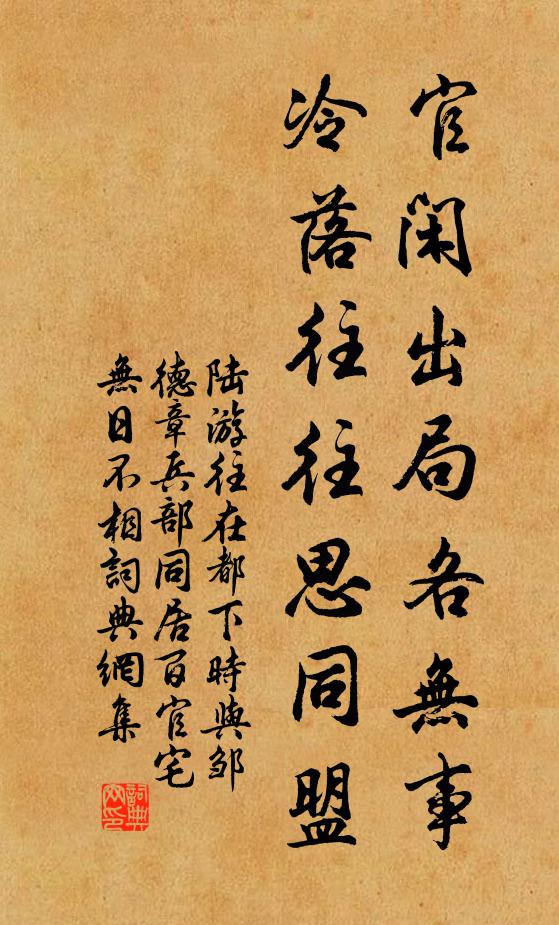 官閑出局各無事
冷落往往思同盟
陆游往在都下時與邹
德章兵部同居百官宅
無日不相詞典網集
詞典
网印